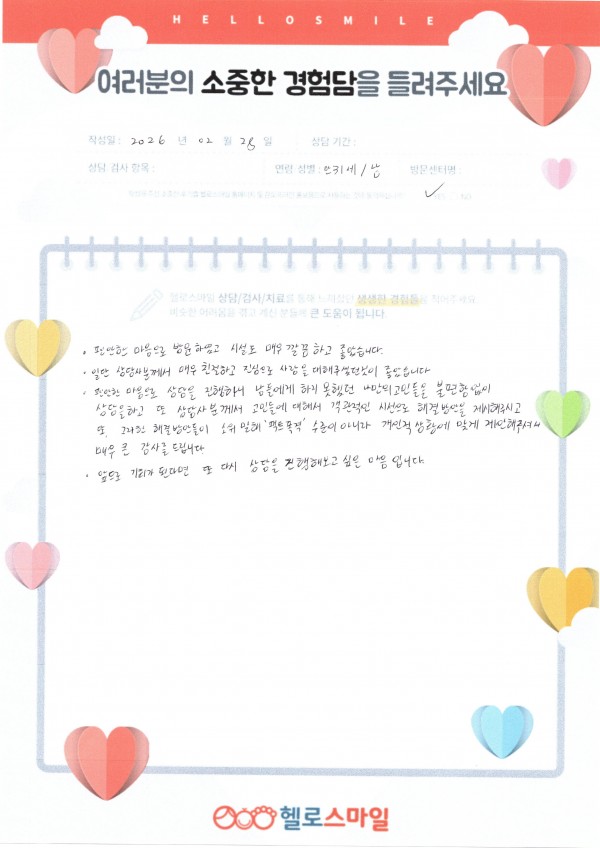 HELLOSMILE
여러분의 소중한 경험담을 들려주세요
작성일 : 2026 년 02 월 28 일 상담 기간 :
상담 검사 항목 : 연령 성별 : 만31세 / 남 방문센터명 :
헬로스마일 상담/검사/치료를 통해 느끼셨던 생생한 경험들을 적어주세요
비슷한 어려움을 겪고 계신 분들께 큰 도움이 됩니다.
· 편안한 마음으로 방문하였고 시설도 매우 깔끔하고 좋았습니다.
· 일단 상담사분께서 매우 친절하고 진심으로 사람을 대해주셨던것이 좋았습니다
· 편안한 마음으로 상담을 진행하며 남들에게 하지 못했던 나만의고민들을 불편함없이
상담을하고 또 상담사분께서 고민들에 대해서 객관적인 시선으로 해결방안을 제시해주시고
또, 그러한 해결방안들이 소위 말해 '팩트폭격' 수준이 아니라 개인적 상황에 맞게 제안해주셔서
매우 큰 감사를 드립니다
· 앞으로 기회가 된다면 또 다시 상담을 진행해보고 싶은 마음 입니다.
헬로스마일